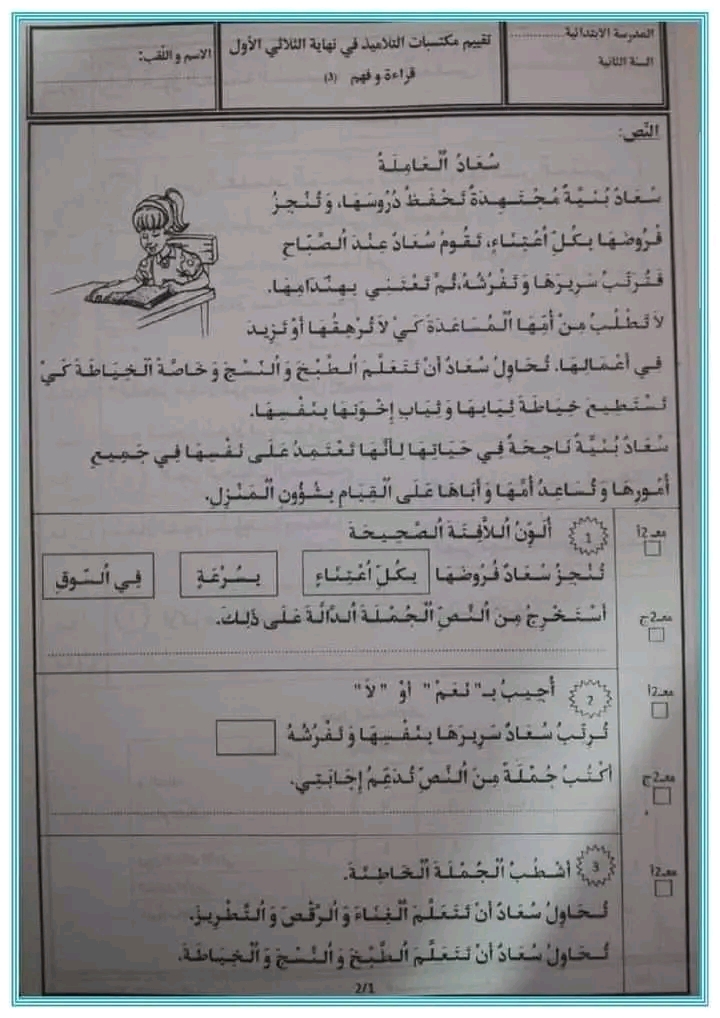 المدرسة الابتدائية..............
السنة الثانية
تقييم مكتسبات التلاميذ في نهاية الثلاثي الأول
قراءة و فهم (3)
الاسم و اللقب:
النّص:
سُعَادُ الْعَامِلَةُ
سُعَادُ بُنَيَّةٌ مُجْتَهِدَةٌ تَحْفَظُ دُرُوسَهَا، وَ تُنْجِزُ
فُرُوضَهَا بِكُلِّ اعْتِنَاءٍ، تَقُومُ سُعَادُ عِنْدَ الصَّبَاحِ
فَتُرَتِّبُ سَرِيرَهَا وَ تَفْرُشُهُ،ثُمَّ تَعْتَنِي بِهِنْدَامِهَا.
لاَ تَطْلُبُ مِنْ أُمِّهَا الْمُسَاعَدَةَ كَيْ لاَ تُرْهِقَهَا أَوْ تَزِيدَ
فِي أَعْمَالِهَا. تُحَاوِلُ سُعَادُ أَنْ تَتَعَلَّمَ الطَّبْخَ وَ النَّسْجَ وَ خَاصَّةً الْخِيَاطَةَ كَيْ
تَسْتَطِيعَ خِيَاطَةَ ثِيَابِهَا وَ ثِيَابِ إِخْوَتِهَا بِنَفْسِهَا.
سُعَادُ بُنَيَّةٌ نَاجِحَةٌ فِي حَيَاتِهَا لِأَنَّهَا تَعْتَمِدُ عَلَى نَفْسِهَا فِي جَمِيعِ
أُمُورِهَا وَ تُسَاعِدُ أُمَّهَا وَ أَبَاهَا عَلَى الْقِيَامِ بِشُؤُونِ الْمَنْزِلِ.
معـ2أ
1 أُلَوِّنُ اللَّافِتَةَ الصَّحِيحَةَ
تُنْجِزُ سُعَادُ فُرُوضَهَا بِكُلِّ اعْتِنَاءٍ بِسُرْعَةٍ فِي السُّوقِ
معـ2ج
أَسْتَخْرِجُ مِنَ النَّصِّ الْجُمْلَةَ الدَّالَّةَ عَلَى ذَلِكَ.
معـ2أ
2 أُجِيبُ بِـ"نَعَمْ" أَوْ "لاَ"
تُرَتِّبُ سُعَادُ سَرِيرَهَا بِنَفْسِهَا وَ تَفْرُشُهُ
معـ2ج
أَكْتُبُ جُمْلَةً مِنَ النَّصِّ تُدَعِّمُ إِجَابَتِي.
معـ2أ
3 أَشْطُبُ الْجُمْلَةَ الْخَاطِئَةَ.
تُحَاوِلُ سُعَادُ أَنْ تَتَعَلَّمَ الْغِنَاءَ وَ الرَّقْصَ وَ التَّطْرِيزَ.
تُحَاوِلُ سُعَادُ أَنْ تَتَعَلَّمَ الطَّبْخَ وَ النَّسْجَ وَ الْخِيَاطَةَ.
2/1